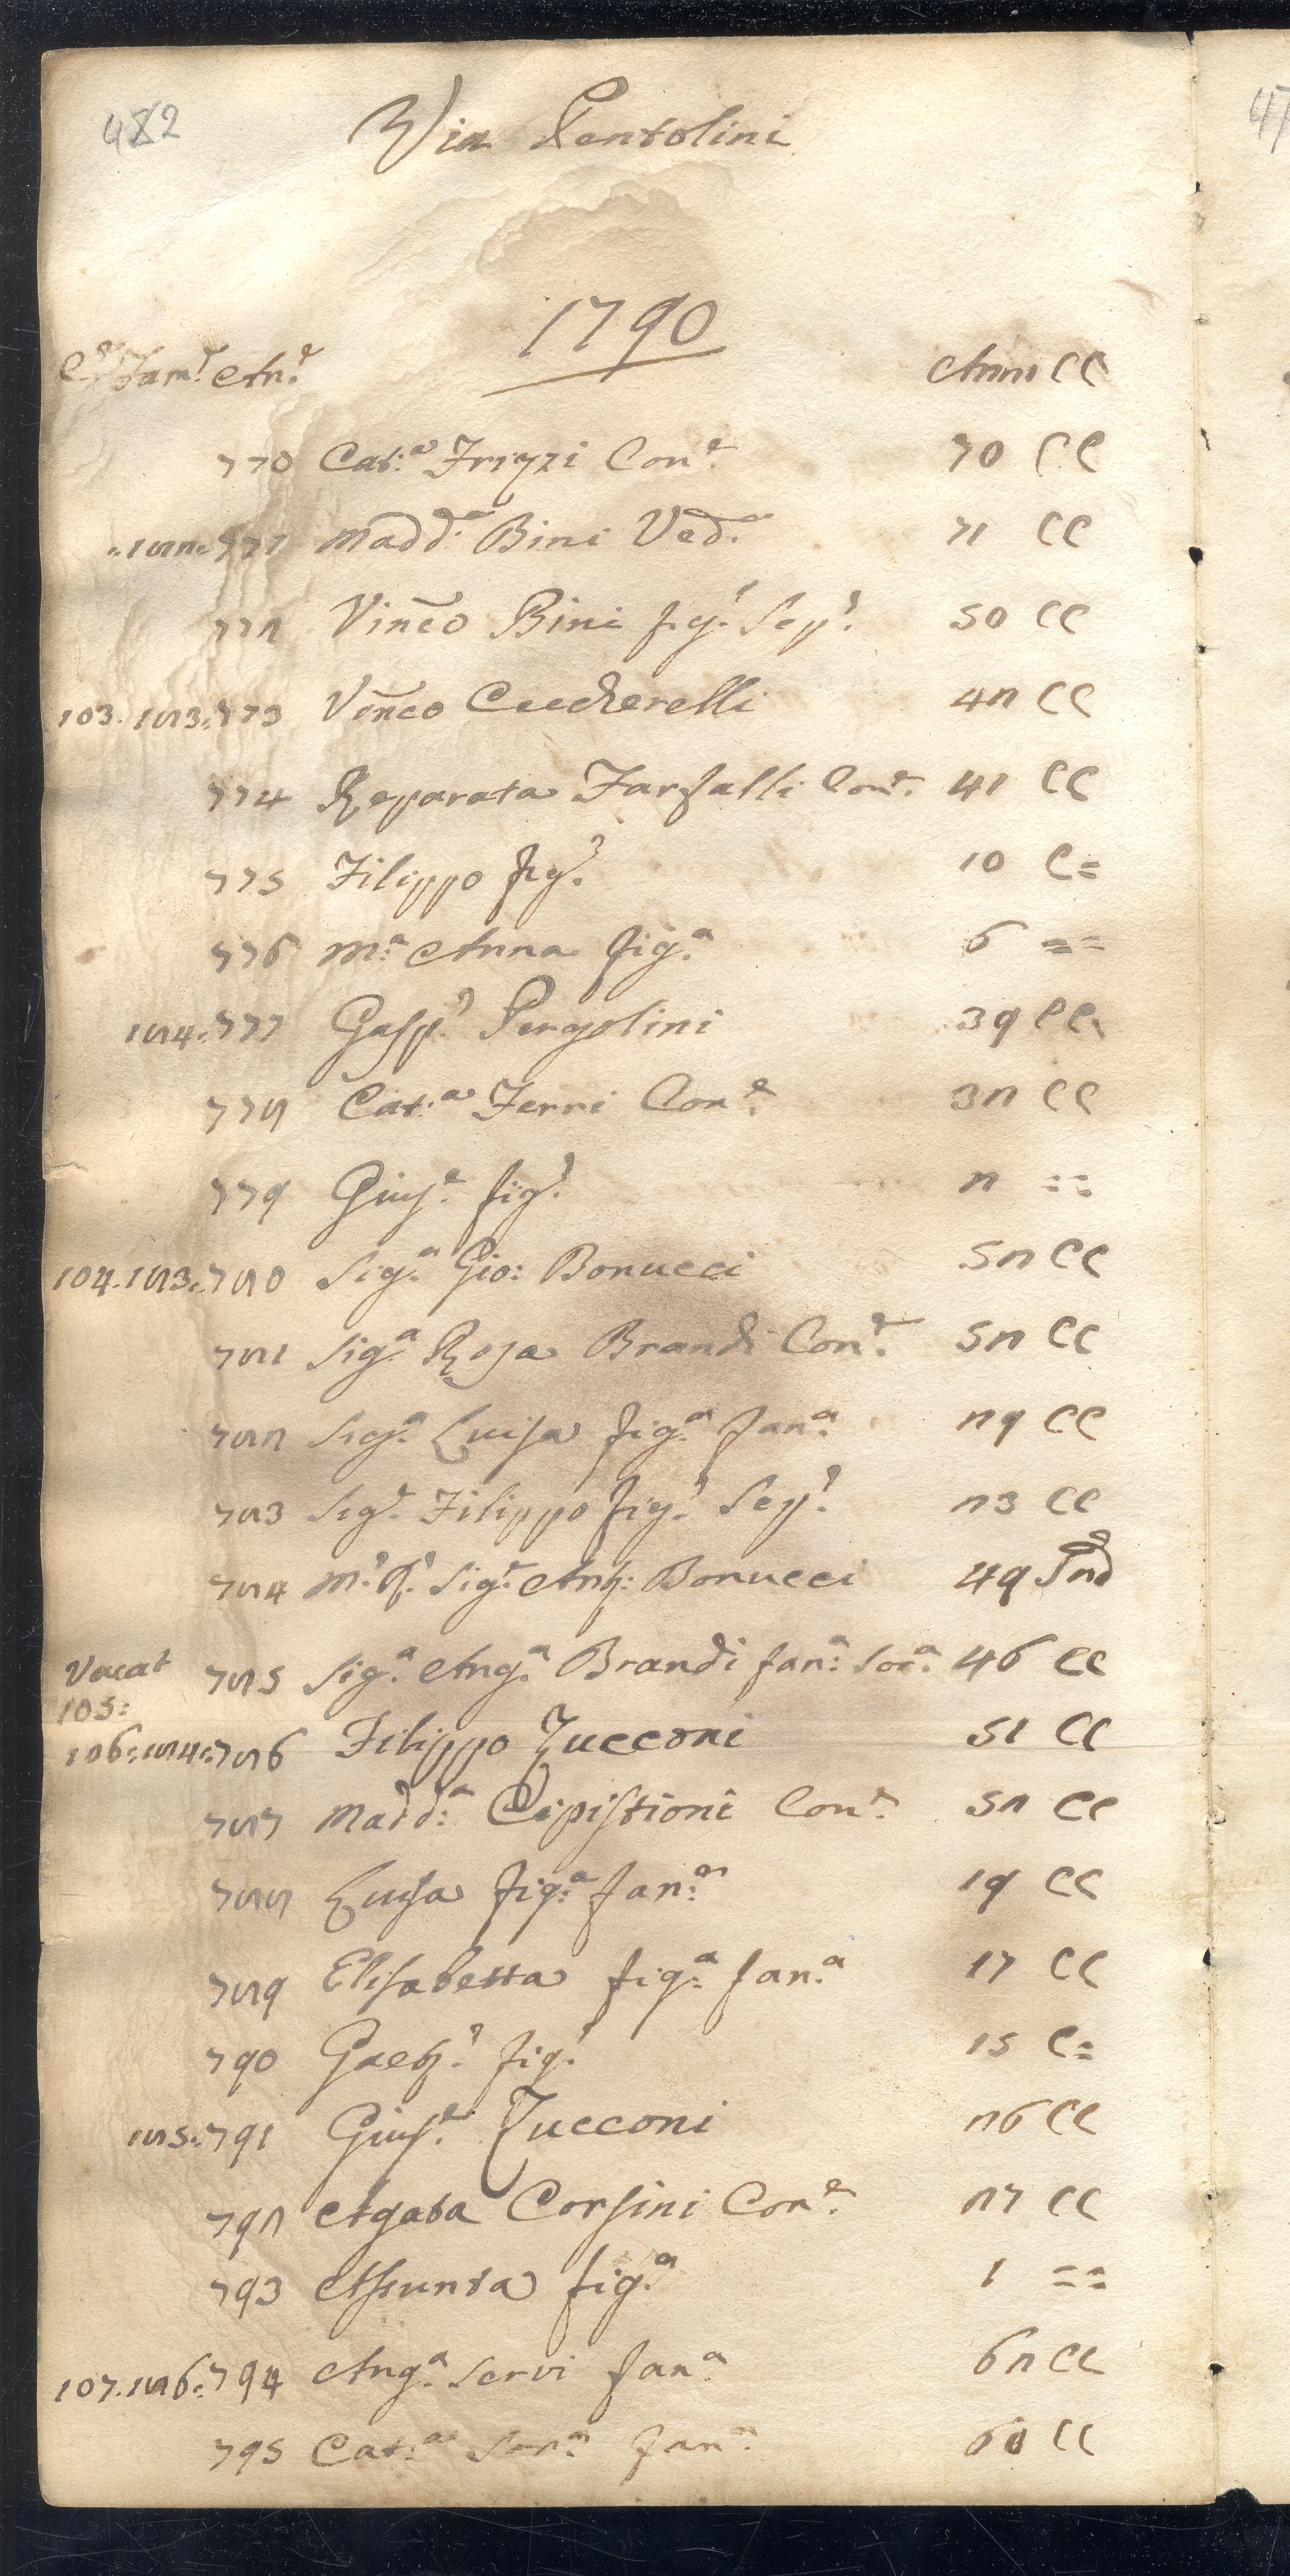 482
Via Pentolini
1790
Cᵉ Famᵉ Anᵉ Anni CC
770 Cat:ᵃ Frizzi Conᵉ. 70 CC
182. 771 Madd:ᵃ Bini Ved.ᵃ 71 CC
772 Vinc̃o Bini fig.º Sep.º 50 CC
103. 183. 773 Vinc̃o Ceccherelli 42 CC
774 Reparata Farfalli Con.ᵉ 41 CC
775 Filippo fig.º 10 C=
776 M.ᵃ Anna fig.ᵃ 6 ==
184. 777 Gasp.º Pergolini 39 CC
778 Cat:ᵃ Ferri Con.ᵉ 32 CC
779 Gius.ᵉ fig.º 2 ==
104. 183. 780 Sig.ʳ Gio: Bonucci 52 CC
781 Sig.ᵃ Rosa Brandi Con.ᵉ 52 CC
782 Sig.ᵃ Luisa fig.ᵃ fan.ᵃ 29 CC
783 Sig.ʳ Filippo fig.º Sep.º 23 CC
784 M.º R.º Sig.ʳ Ang: Bonucci 49
Vacat 105: 785 Sig.ᵃ Ang.ᵃ Brandi fan.ᵃ Sor.ᵃ 46 CC
106: 184: 786 Filippo Zucconi 51 CC
787 Madd:ᵃ Cipistioni Con.ᵉ 52 CC
788 Luisa fig.ᵃ fan.ᵃ 19 CC
789 Elisabetta fig.ᵃ fan.ᵃ 17 CC
790 Gaet.º fig.º 15 C=
185. 791 Gius.ᵉ Zucconi 26 CC
792 Agata Corsini Con.ᵉ 27 CC
793 Assunta fig.ᵃ 1 ==
107. 186. 794 Ang.ᵃ Servi fan.ᵃ 62 CC
795 Cat:ᵃ Sor.ᵃ fan.ᵃ 60 CC
47